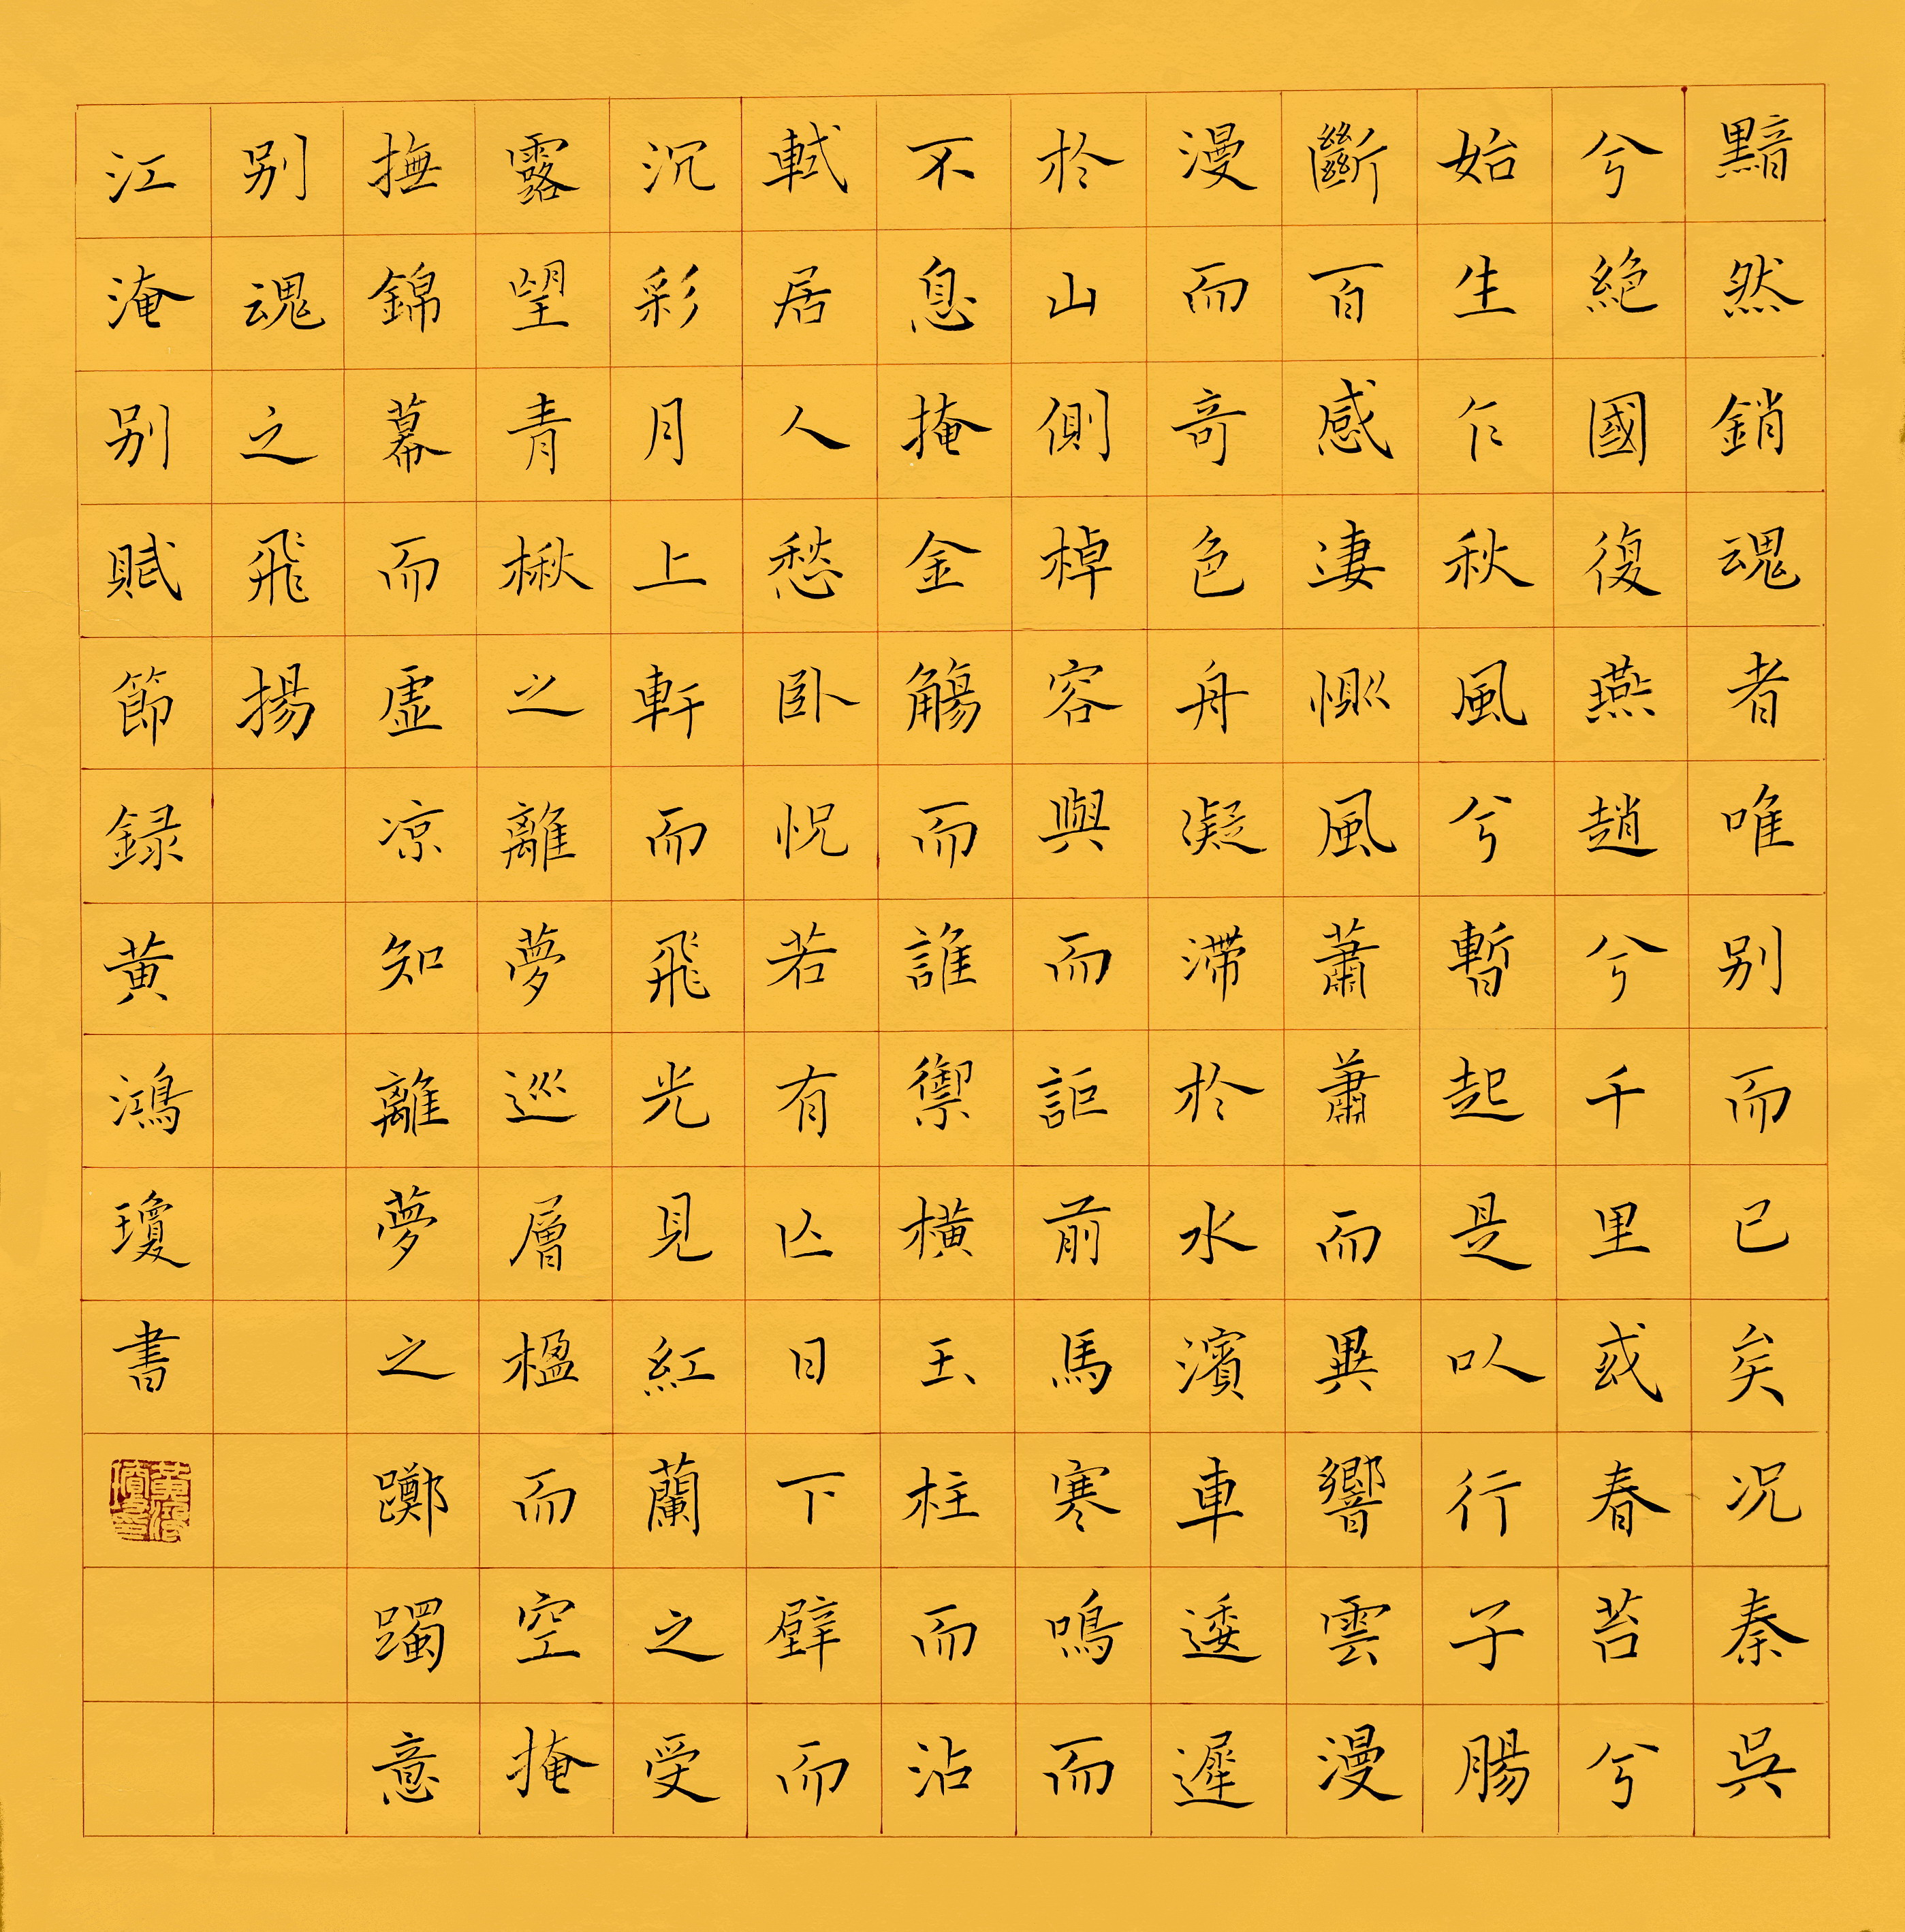 黯然銷魂者唯别而已矣况秦吳
兮絶國復燕趙兮千里或春苔兮
始生乍秋風兮暫起是以行子腸
斷百感凄惻風蕭蕭而異響雲漫
漫而奇色舟凝滯於水濱車逶遲
於山側棹容與而詎前馬寒鳴而
不息掩金觴而誰禦横玉柱而沾
軾居人愁卧怳若有亾日下壁而
沉彩月上軒而飛光見紅蘭之受
露望青楸之離夢巡層楹而空掩
撫錦幕而虚凉知離夢之躑躅意
别魂之飛揚
江淹别賦節録黄鴻瓊書
黄鴻瓊印